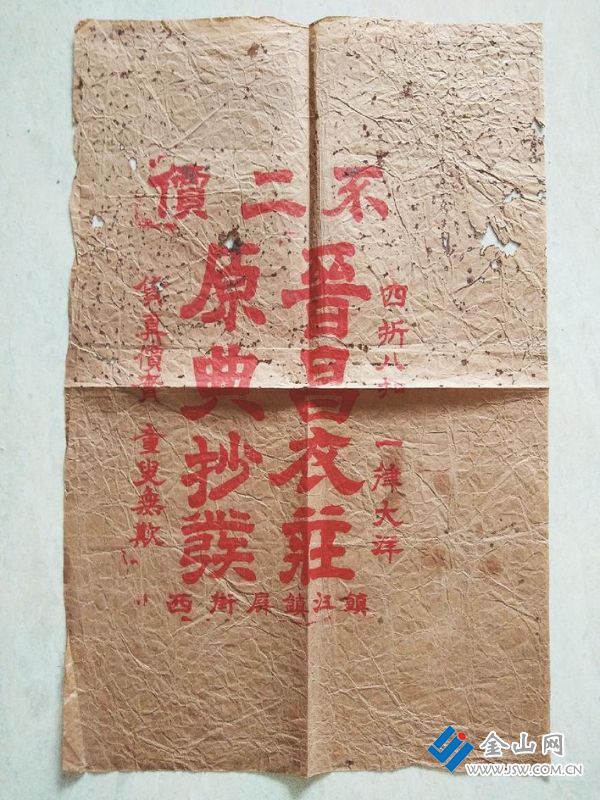 不二價
四折八扣 一律大洋
晉昌衣莊
原典抄發
貨真價實 童叟無欺
鎮江鎮屏街西
金山网
WWW.JSW.COM.CN